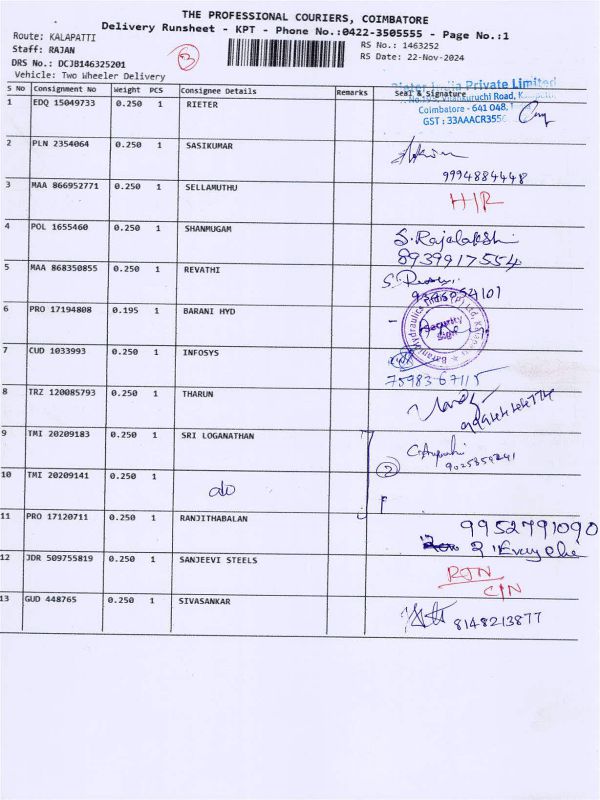 THE PROFESSIONAL COURIERS, COIMBATORE
Delivery Runsheet - KPT - Phone No.:0422-3505555 - Page No.:1
Route: KALAPATTI
Staff: RAJAN
DRS No.: DCJB146325201
Vehicle: Two Wheeler Delivery
3
RS No.: 1463252
RS Date: 22-Nov-2024
S No Consignment No Weight PCS Consignee Details Remarks Seal & Signature
India Private Limited
Coimbatore - 641 048,
GST : 33AAACR355
1 EDQ 15049733 0.250 1 RIETER
2 PLN 2354064 0.250 1 SASIKUMAR
9994884448
3 MAA 866952771 0.250 1 SELLAMUTHU H/R
4 POL 1655460 0.250 1 SHANMUGAM S.Rajalakshi
8939917554
5 MAA 868350855 0.250 1 REVATHI
6 PRO 17194808 0.195 1 BARANI HYD
Security
7 CUD 1033993 0.250 1 INFOSYS
7598367115
8 TRZ 120085793 0.250 1 THARUN
9 TMI 20209183 0.250 1 SRI LOGANATHAN
2
10 TMI 20209141 0.250 1 do
11 PRO 17120711 0.250 1 RANJITHABALAN 9952791090
12 JDR 509755819 0.250 1 SANJEEVI STEELS RTN
C/N
13 GUD 448765 0.250 1 SIVASANKAR 8148213877